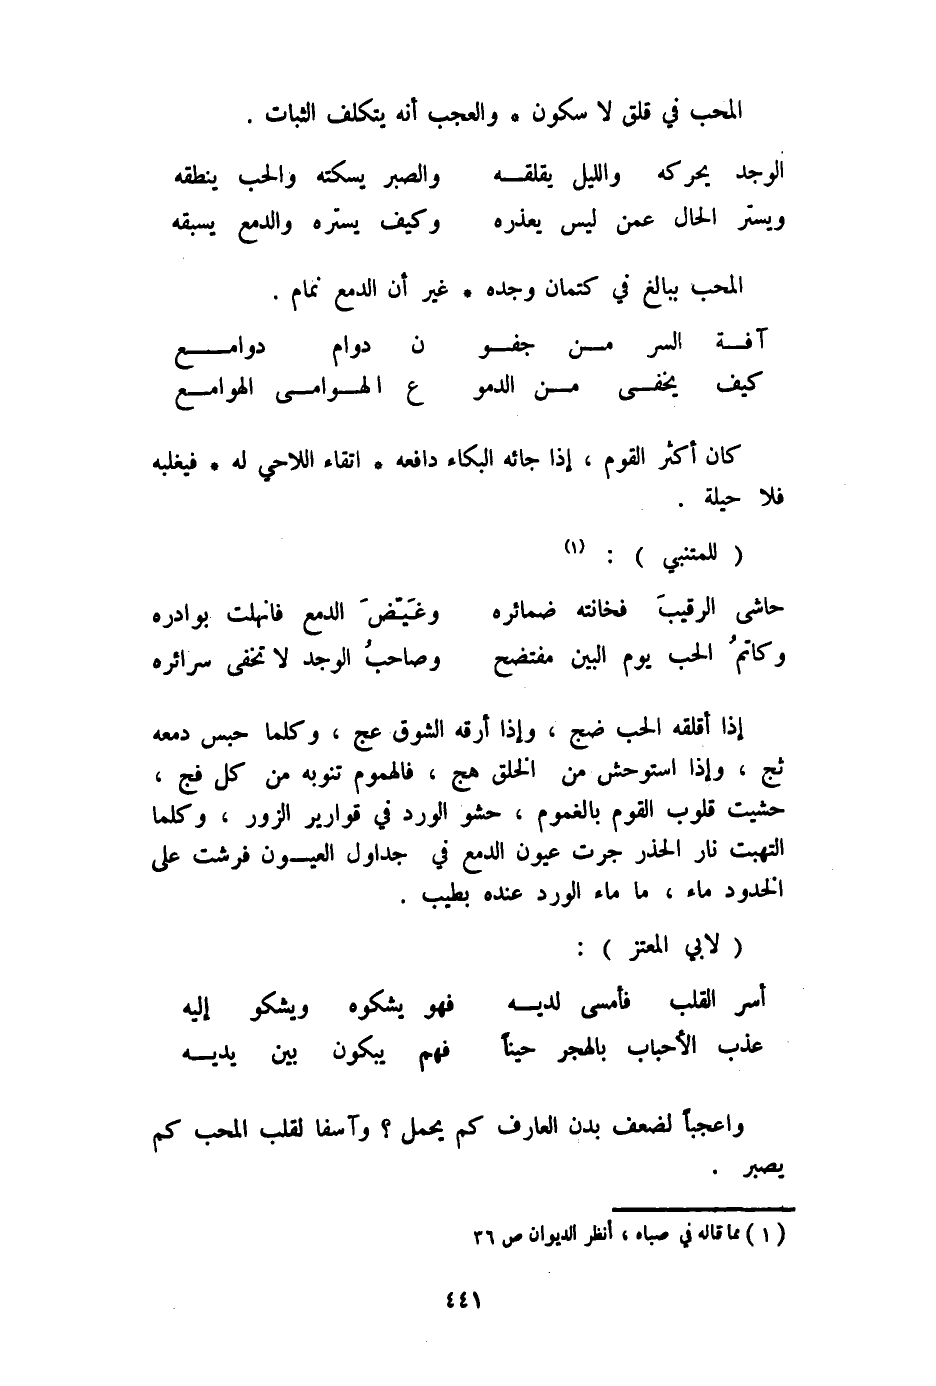 المحب في قلق لا سكون * والعجب أنه يتكلف الثبات .
الوجد يحركه والليل يقلقـــه والصبر يسكته والحب ينطقه
ويستّر الحال عمن ليس يعذره وكيف يستّره والدمع يسبقه
المحب يبالغ في كتمان وجده * غير أن الدمع نمام .
آفــة السر مــن جفــو ن دوام دوامــــع
كيف يخفــى مــن الدمو ع الهــوامــى الهوامــع
كان أكثر القوم ، إذا جائه البكاء دافعه * اتقاء اللاحي له * فيغلبه
فلا حيلة .
( للمتنبي ) : (١)
حاشى الرقيبَ فخانته ضمائره وغَيّضَ الدمع فانهلت بوادره
وكاتمُ الحب يوم البين مفتضح وصاحبُ الوجد لا تخفى سرائره
إذا أقلقه الحب ضج ، وإذا أرقه الشوق عج ، وكلما حبس دمعه
ثج ، وإذا استوحش من الخلق هج ، فالهموم تنوبه من كل فج ،
حشيت قلوب القوم بالغموم ، حشو الورد في قوارير الزور ، وكلما
التهبت نار الحذر جرت عيون الدمع في جداول العيــون فرشت على
الخدود ماء ، ما ماء الورد عنده بطيب .
( لابي المعتز ) :
أسر القلب فأمسى لديــه فهو يشكوه ويشكو إليه
عذب الأحباب بالهجر حيناً فهم يبكون بين يديــه
واعجباً لضعف بدن العارف كم يحمل ؟ وآسفا لقلب المحب كم
يصبر .
(١) مما قاله في صباه ، أنظر الديوان ص ٣٦
٤٤١